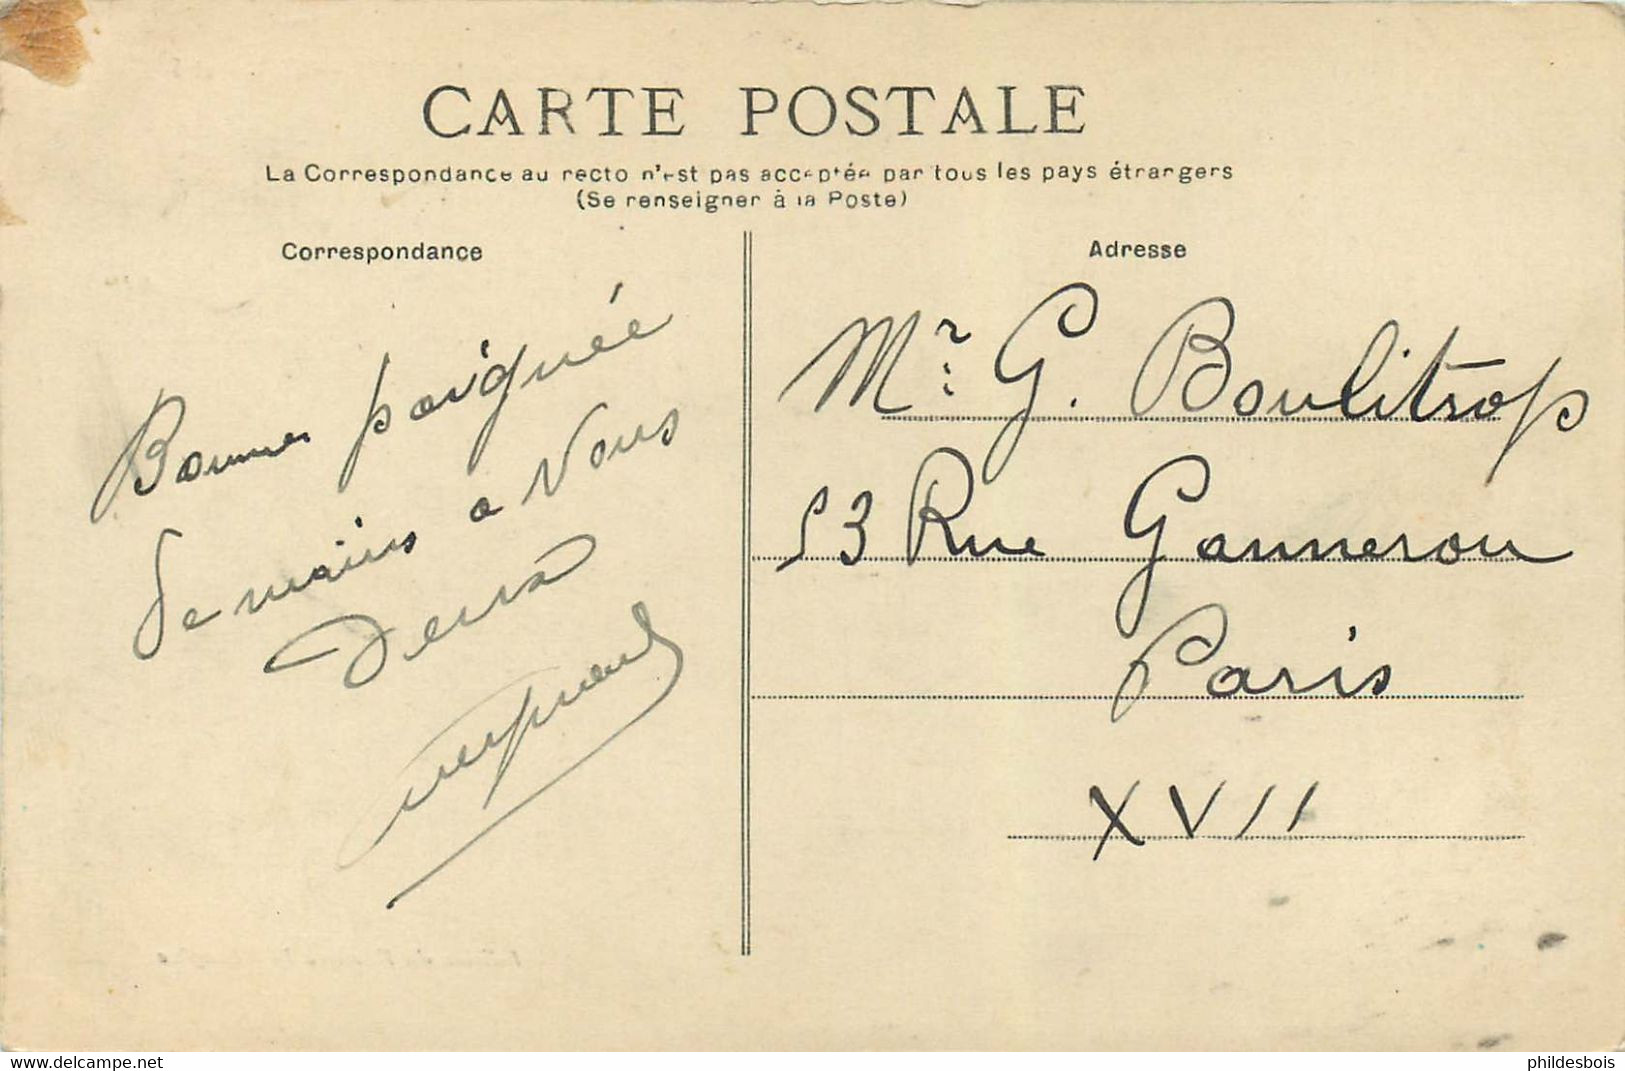 CARTE POSTALE
La Correspondance au recto n'est pas acceptée par tous les pays étrangers
(Se renseigner à la Poste)
Correspondance
Adresse
Bonnes poignée
de mains a vous
deux
Mr G. Boulitrop
53 Rue Ganneron
Paris
XVII
delcampe.net
phildesbois